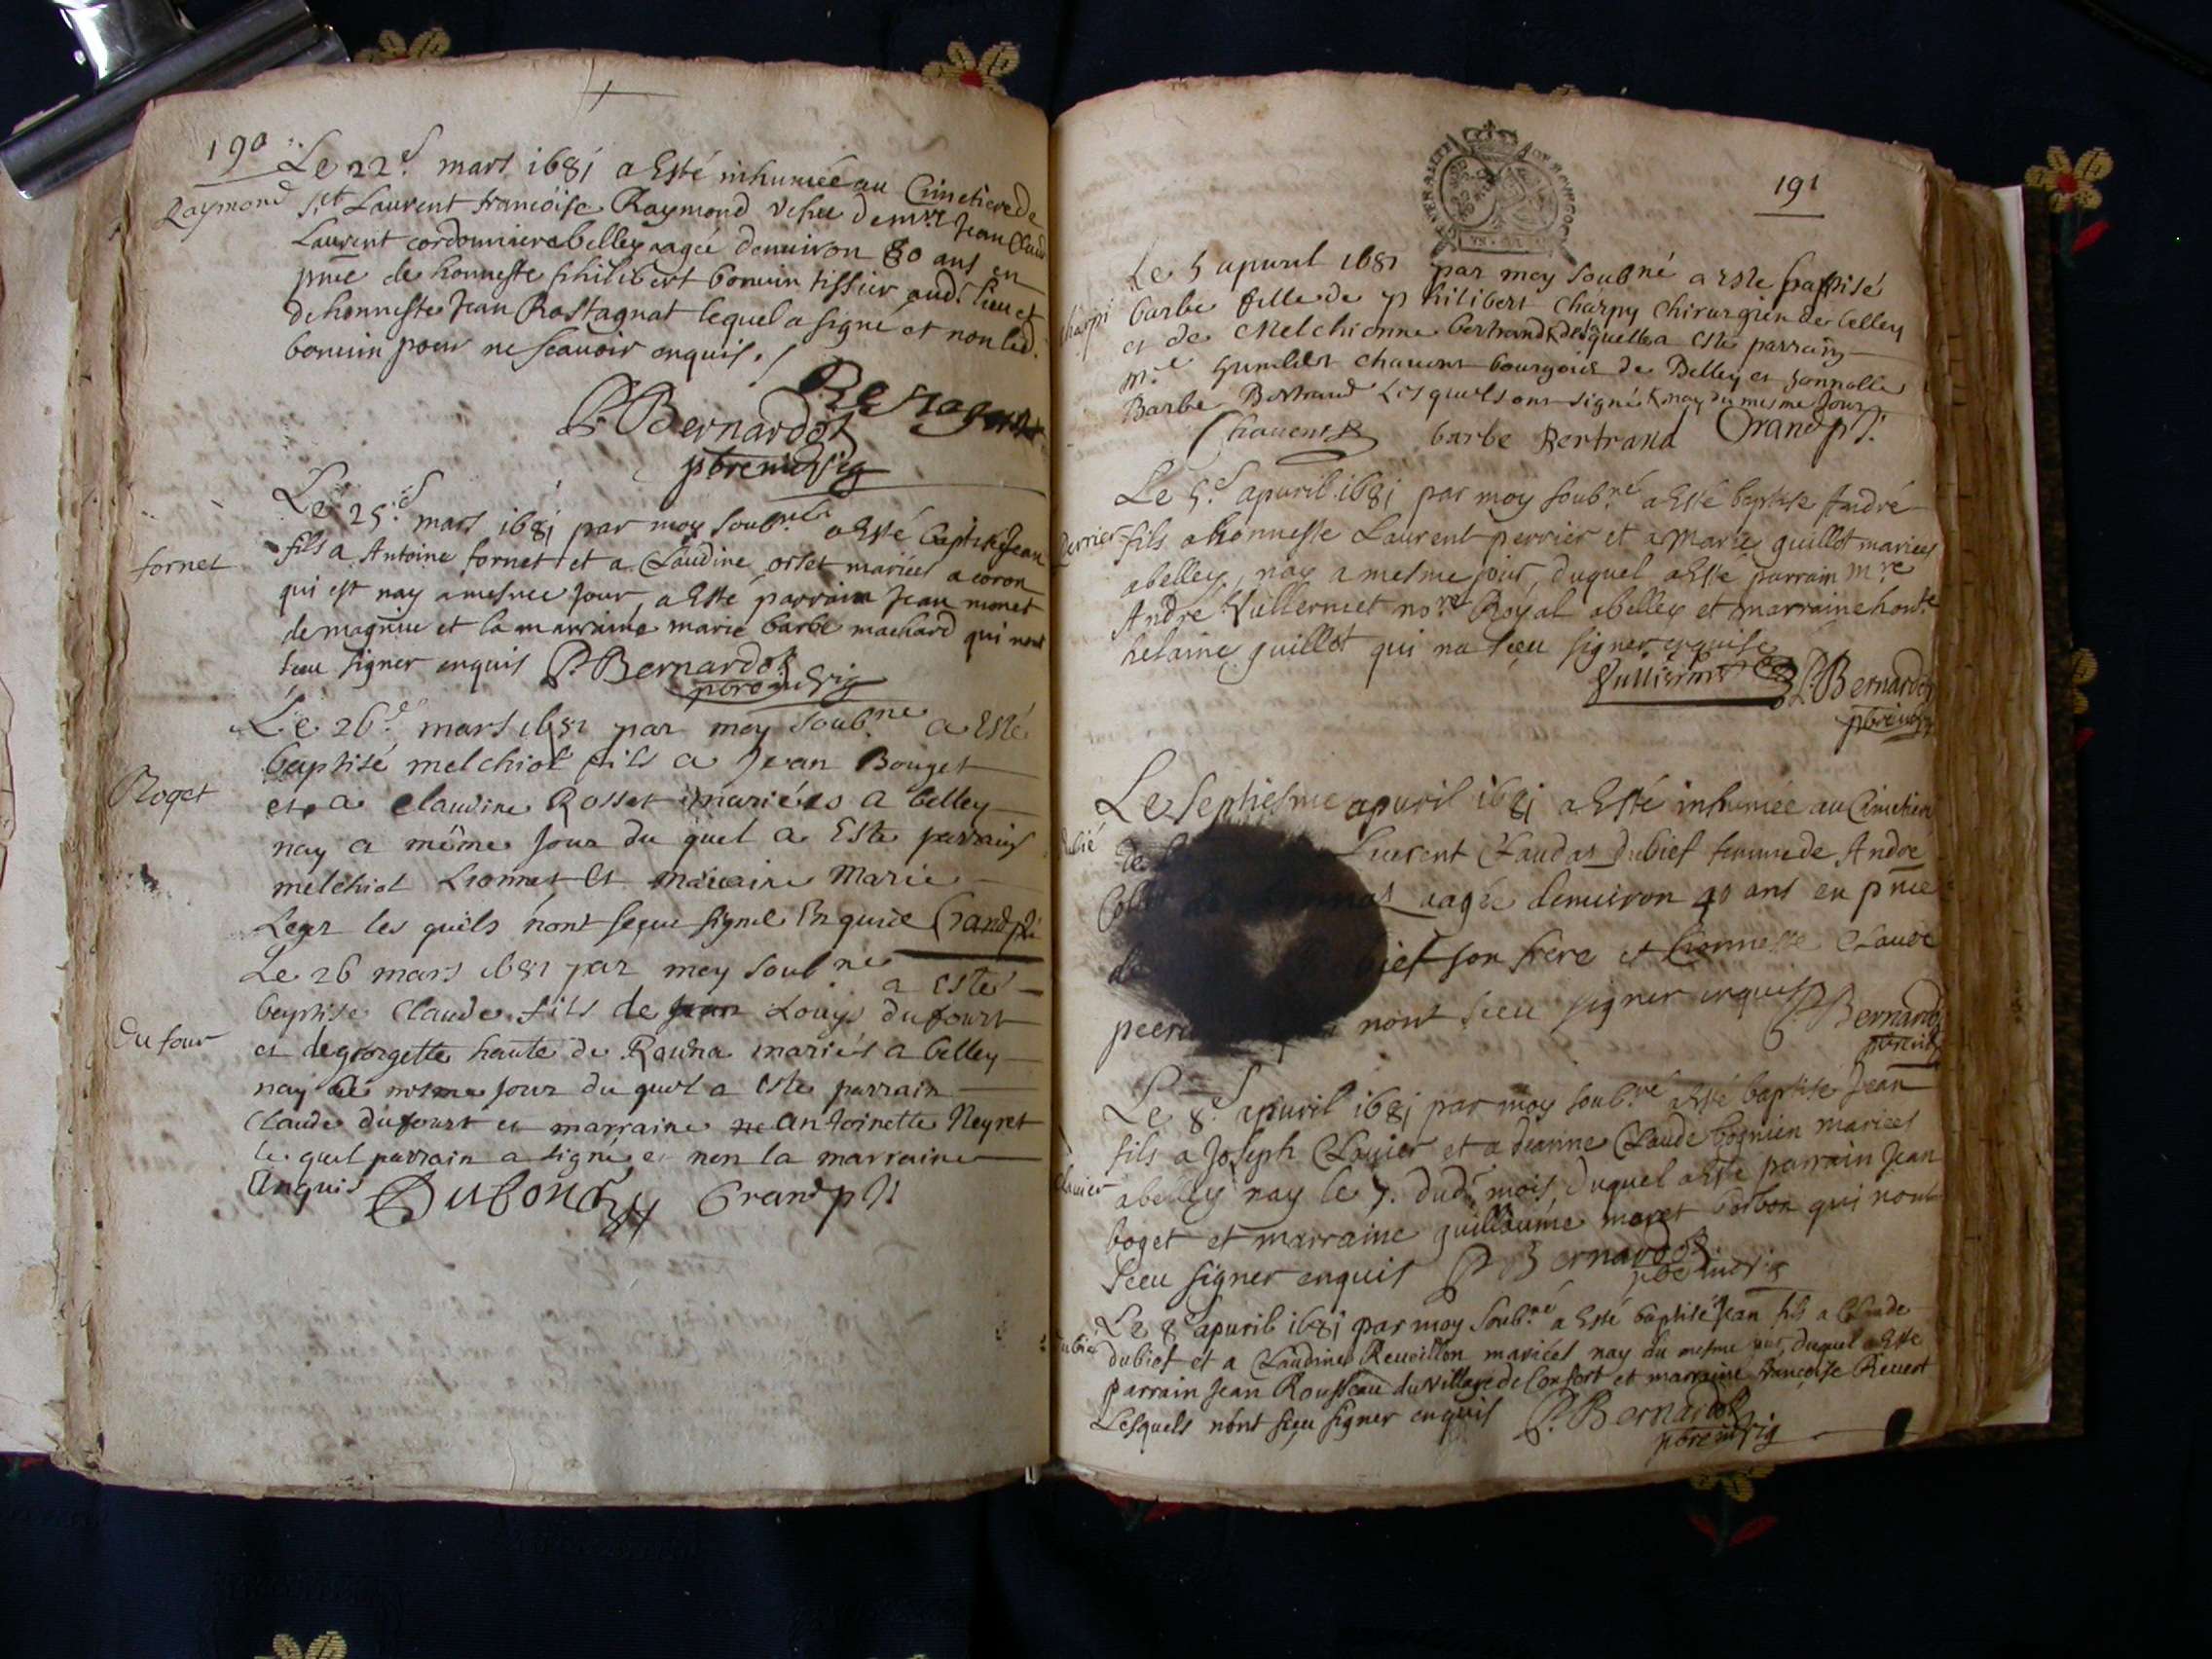 190
Le 22.e mars 1681 a Esté inhumée au Cimetiere de
Raymond
st Laurent francoise Raymond vefue de mre Jean Claude
Laurent cordonnier a belley aagée denuiron 80 ans en
pnce de honneste philibert bonuin tissier aud. lieu et
de honneste Jean Rostagnat lequel a signé et non led.
bonuin pour ne scauoir enquis.
Rostagnat
P. Bernardot
pbre
Le 25.e mars 1681 par moy soubne a Esté baptisé Jean
fornet
fils a Antoine fornet et a Claudine orset mariées a coron
qui est nay a mesme Jour, a Esté parrain Jean monet
de magnieu et la marraine marie barbe machard qui nont
sceu signer enquis P. Bernardot
pbre
Le 26.e mars 1681 par moy soubne a Esté
baptisé melchiol fils a Jean Bouget
Boget
et a Claudine Rosset mariées a belley
nay a même Jour du quel a Esté parrain
melchiol Lionnet et maraine Marie
Leger les quels nont sceu signé Enquise Grand pr
Le 26 mars 1681 par moy soubne a esté
baptise Claude fils de Louys dufourt
Du four
et de georgette haute de Rauna mariés a belley
nay de mesme Jour du quel a este parrain
Claude dufourt et marraine antoinette Neyret
le quel parrain a signé et non la marraine
Enquis Dufour Grand pr
191
Le 5 apuril 1681 par moy soubné a este baptisé
Charpi
barbe fille de philibert Charpy Chirurgien de belley
et de Melchionne bertrand de laquelle a esté parrain
m.e humbert Chauent bourgois de Belley et honnolle
Barbe Bertrand Lesquels ont signé nay du mesme Jour
Chauent barbe Bertrand Grand pr.
Le 5.e apuril 1681 par moy soubné a Esté baptise André
perrier
fils a honneste Laurent perrier et a Marie guillot mariees
a belley, nay a mesme jour, duquel a Esté parrain mre
Andre Vulliermet nore Royal a belley et marraine honte
helaine guillot qui na sceu signer enquise
Vulliermet P. Bernardot
pbre
Le septiesme apuril 1681 a Esté inhumée au Cimetiere
dubié
de Laurent Claudas dubief femme de André
aagée denuiron 40 ans en pnce
de son frere et honneste Claude
nont sceu signer enquis P. Bernardot
pbre
Le 8.e apuril 1681 par moy soubné a Esté baptisé Jean
fils a Joseph Clauier et a Jeanne Claude bognien mariees
Clauier
a belley nay le 7. dud. mois, duquel a Esté parrain Jean
boget et marraine guillaume moret bosbon qui nont
sceu signer enquis P. Bernardot
pbre
Le 8.e apuril 1681 par moy soubné a Esté baptisé Jean fils a Claude
dubié
dubief et a Claudine Reueillon mariées nay du mesme jour, duquel a Esté
parrain Jean Rousseau du village de Confort et marraine francoise Reuert
Lesquels nont sceu signer enquis P. Bernardot
pbre